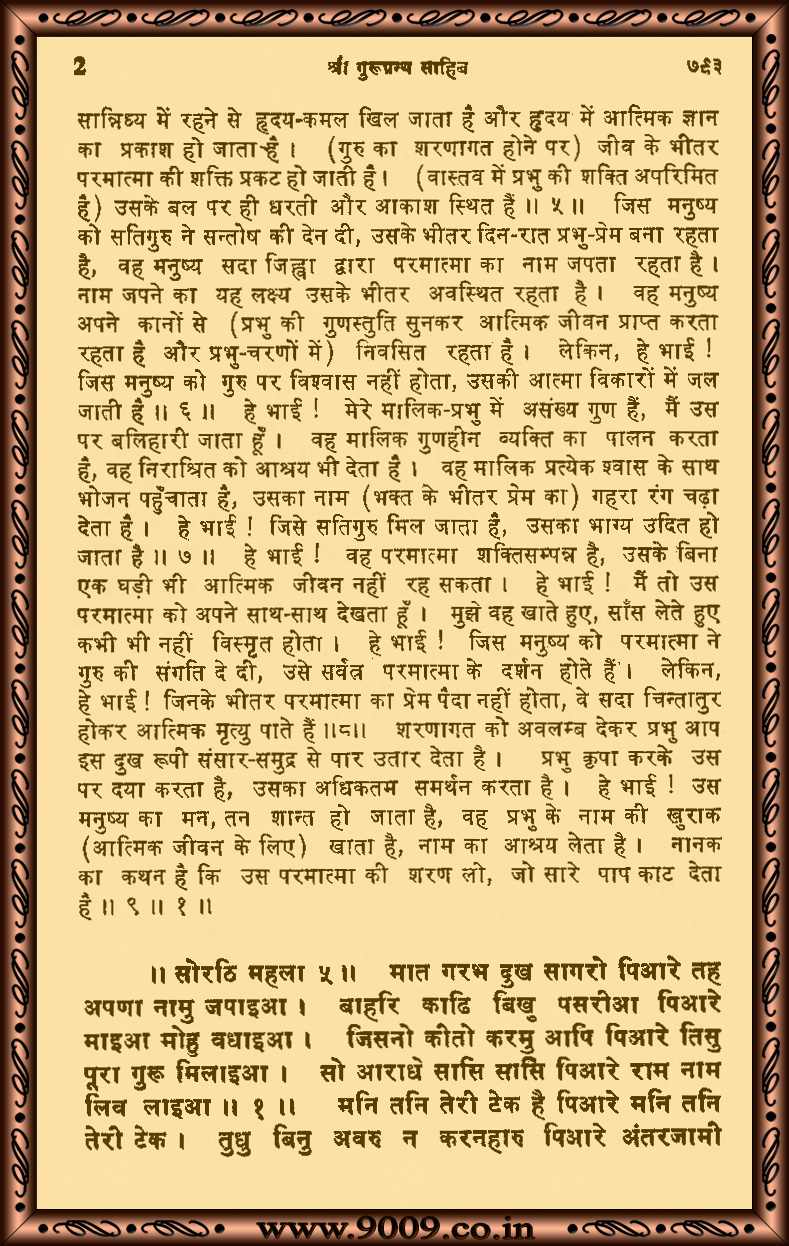 2 श्री गुरूग्रन्थ साहिब ७९३
सान्निध्य में रहने से हृदय-कमल खिल जाता है और हृदय में आत्मिक ज्ञान
का प्रकाश हो जाता है । (गुरु का शरणागत होने पर) जीव के भीतर
परमात्मा की शक्ति प्रकट हो जाती है। (वास्तव में प्रभु की शक्ति अपरिमित
है) उसके बल पर ही धरती और आकाश स्थित हैं ॥ ५ ॥ जिस मनुष्य
को सतिगुरु ने सन्तोष की देन दी, उसके भीतर दिन-रात प्रभु-प्रेम बना रहता
है, वह मनुष्य सदा जिह्वा द्वारा परमात्मा का नाम जपता रहता है ।
नाम जपने का यह लक्ष्य उसके भीतर अवस्थित रहता है । वह मनुष्य
अपने कानों से (प्रभु की गुणस्तुति सुनकर आत्मिक जीवन प्राप्त करता
रहता है और प्रभु-चरणों में) निवसित रहता है । लेकिन, हे भाई !
जिस मनुष्य को गुरु पर विश्वास नहीं होता, उसकी आत्मा विकारों में जल
जाती है ॥ ६ ॥ हे भाई ! मेरे मालिक-प्रभु में असंख्य गुण हैं, मैं उस
पर बलिहारी जाता हूँ । वह मालिक गुणहीन व्यक्ति का पालन करता
है, वह निराश्रित को आश्रय भी देता है । वह मालिक प्रत्येक श्वास के साथ
भोजन पहुँचाता है, उसका नाम (भक्त के भीतर प्रेम का) गहरा रंग चढ़ा
देता है । हे भाई ! जिसे सतिगुरु मिल जाता है, उसका भाग्य उदित हो
जाता है ॥ ७ ॥ हे भाई ! वह परमात्मा शक्तिसम्पन्न है, उसके बिना
एक घड़ी भी आत्मिक जीवन नहीं रह सकता । हे भाई ! मैं तो उस
परमात्मा को अपने साथ-साथ देखता हूँ । मुझे वह खाते हुए, साँस लेते हुए
कभी भी नहीं विस्मृत होता । हे भाई ! जिस मनुष्य को परमात्मा ने
गुरु की संगति दे दी, उसे सर्वत्र परमात्मा के दर्शन होते हैं । लेकिन,
हे भाई ! जिनके भीतर परमात्मा का प्रेम पैदा नहीं होता, वे सदा चिन्तातुर
होकर आत्मिक मृत्यु पाते हैं ॥८॥ शरणागत को अवलम्ब देकर प्रभु आप
इस दुख रूपी संसार-समुद्र से पार उतार देता है । प्रभु कृपा करके उस
पर दया करता है, उसका अधिकतम समर्थन करता है । हे भाई ! उस
मनुष्य का मन, तन शान्त हो जाता है, वह प्रभु के नाम की खुराक
(आत्मिक जीवन के लिए) खाता है, नाम का आश्रय लेता है । नानक
का कथन है कि उस परमात्मा की शरण लो, जो सारे पाप काट देता
है ॥ ९ ॥ १ ॥
॥ सोरठि महला ५ ॥ मात गरभ दुख सागरो पिआरे तह
अपणा नामु जपाइआ । बाहरि काढि बिखु पसरीआ पिआरे
माइआ मोहु वधाइआ । जिसनो कीतो करमु आपि पिआरे तिसु
पूरा गुरू मिलाइआ । सो आराधे सासि सासि पिआरे राम नाम
लिव लाइआ ॥ १ ॥ मनि तनि तेरी टेक है पिआरे मनि तनि
तेरी टेक । तुधु बिनु अवरु न करनहारु पिआरे अंतरजामी
www.9009.co.in